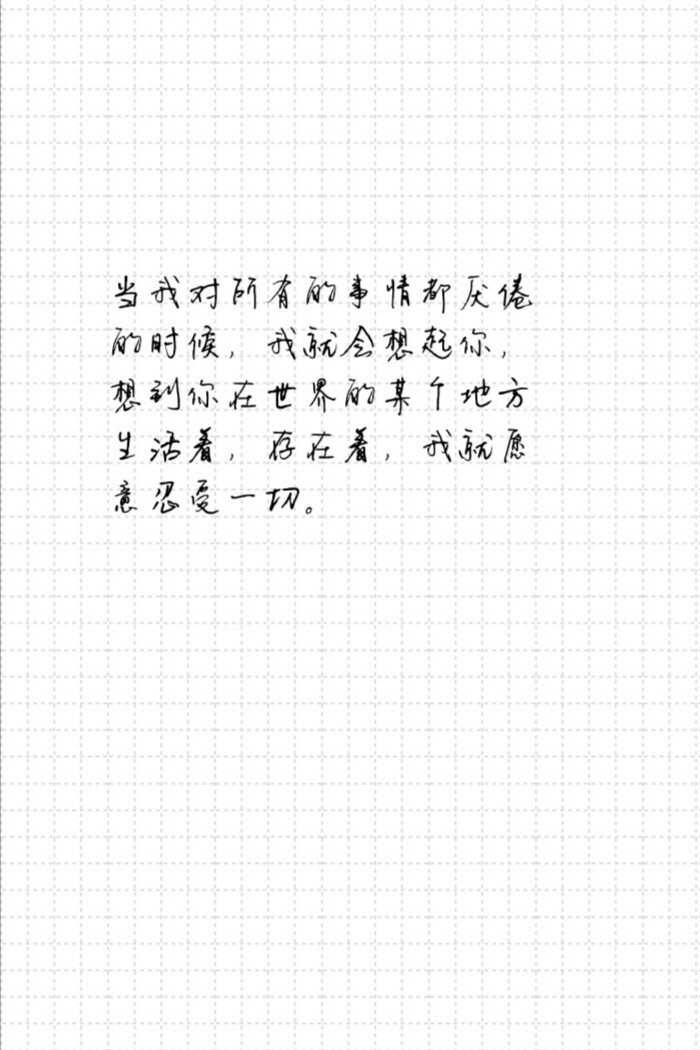 当我对所有的事情都厌倦
的时候，我就会想起你，
想到你在世界的某个地方
生活着，存在着，我就愿
意忍受一切。